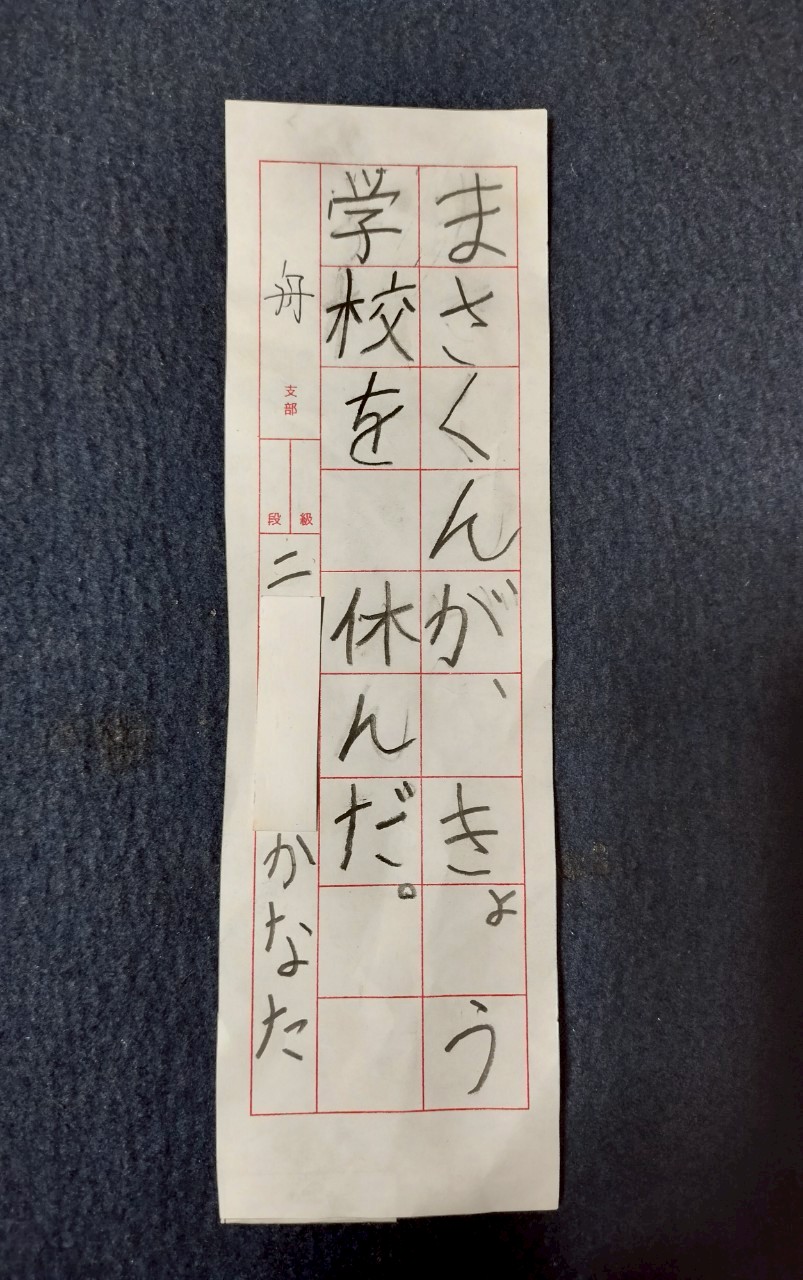 まさくんが、きょう
学校を 休んだ。
舟 支部
級
段
二 かなた